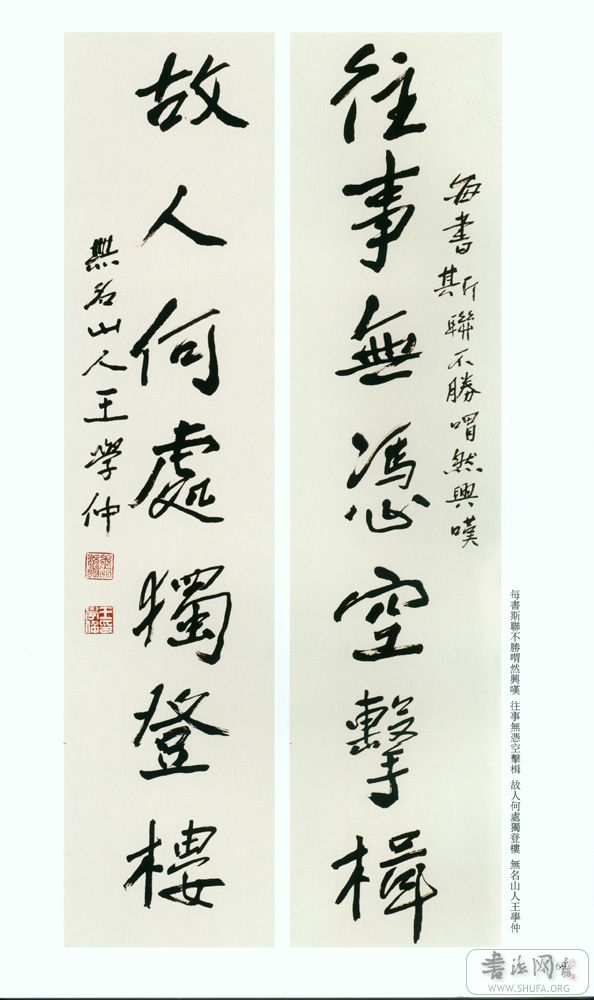 每書斯聯不勝喟然興嘆
往事無憑空擊楫
故人何處獨登樓
無名山人王學仲
每書斯聯不勝喟然興嘆 往事無憑空擊楫 故人何處獨登樓 無名山人王學仲
書法网
WWW.SHUFA.ORG